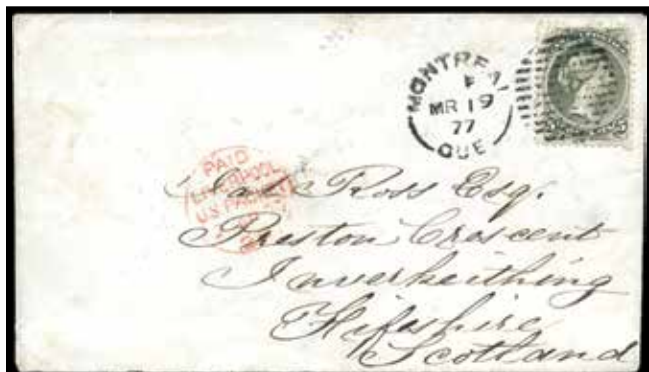 MONTREAL
MR 19
77
QUE
5
PAID
LIVERPOOL
U.S. PACKET
Ross Esq.
Preston Crescent
Inverkeithing
Fifeshire
Scotland